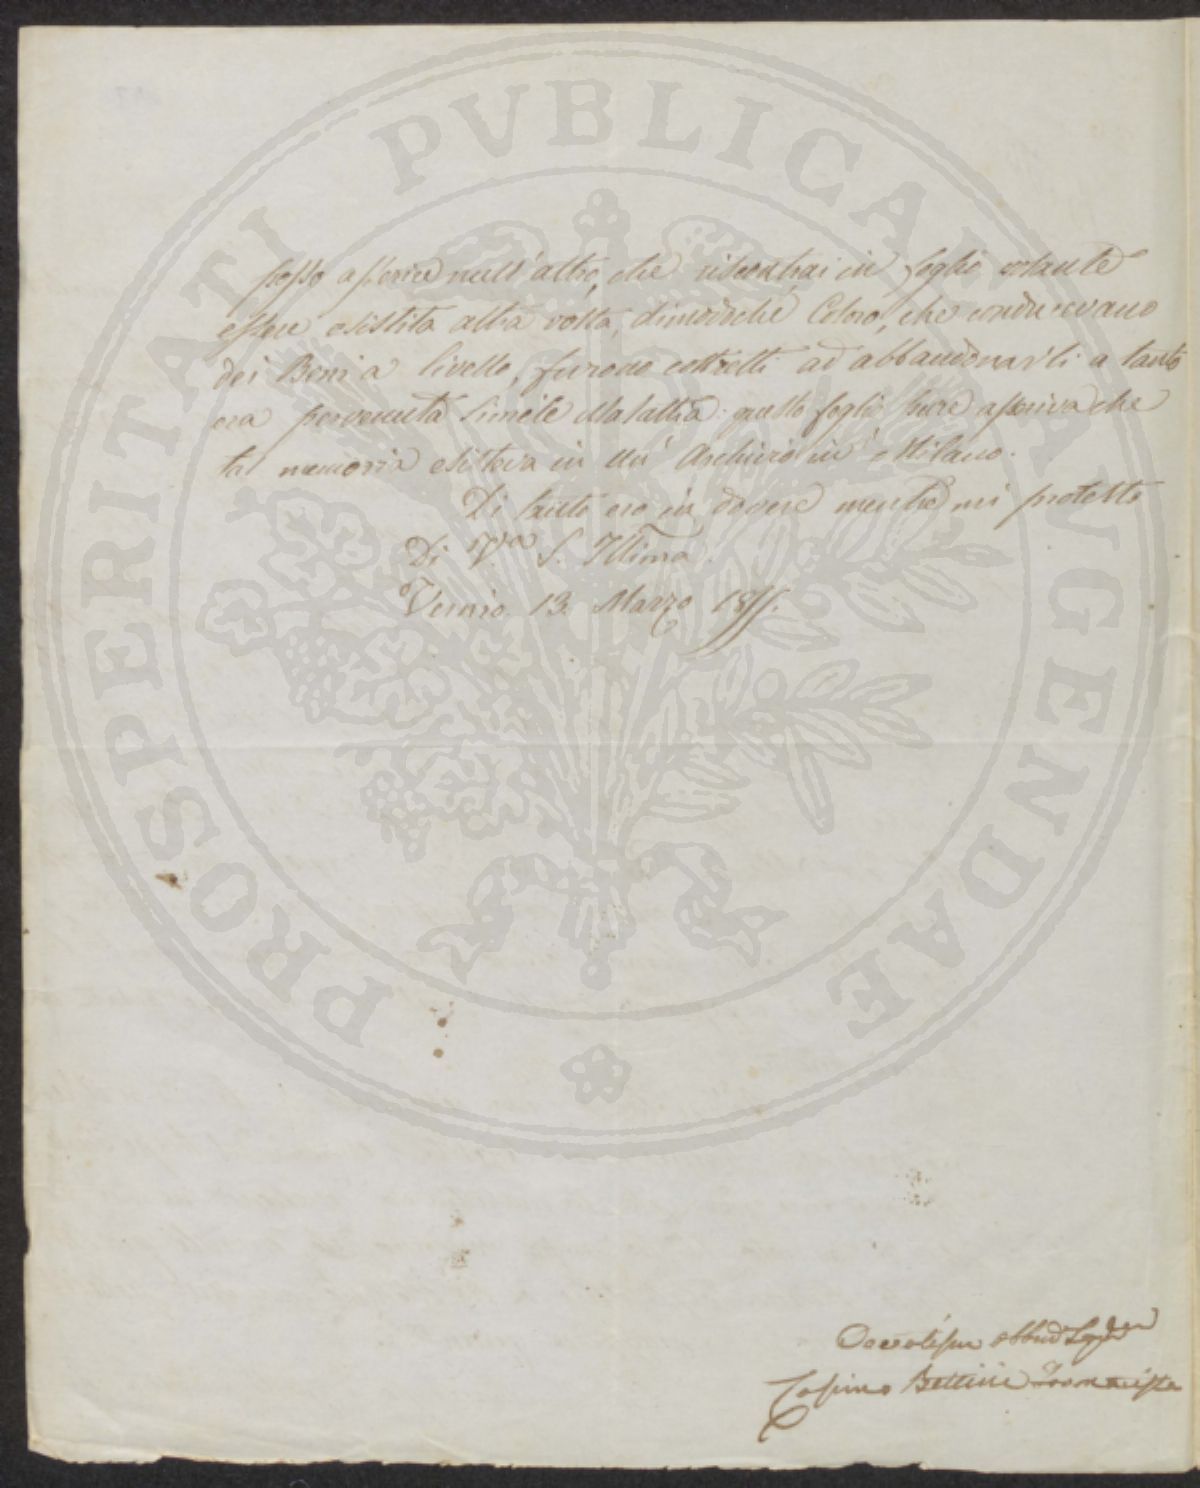 PROSPERITATI PVBLICAE AVGENDAE
posso asserire null'altro, che riscontrai in foglio volante
essere esistita altra volta, dimodoché Coloro, che conducevano
dei Beni a livello, furono costretti ad abbandonarli a tanto
era pervenuta simile Malattia: questo foglio pure asseriva che
tal memoria esisteva in un' Archivio in Milano.
Di tanto ero in dovere mentre mi protesto
Di V.a S. Illma.
Vernio 13. Marzo 1855.
Devotisso obbmo
Cosimo Bettini